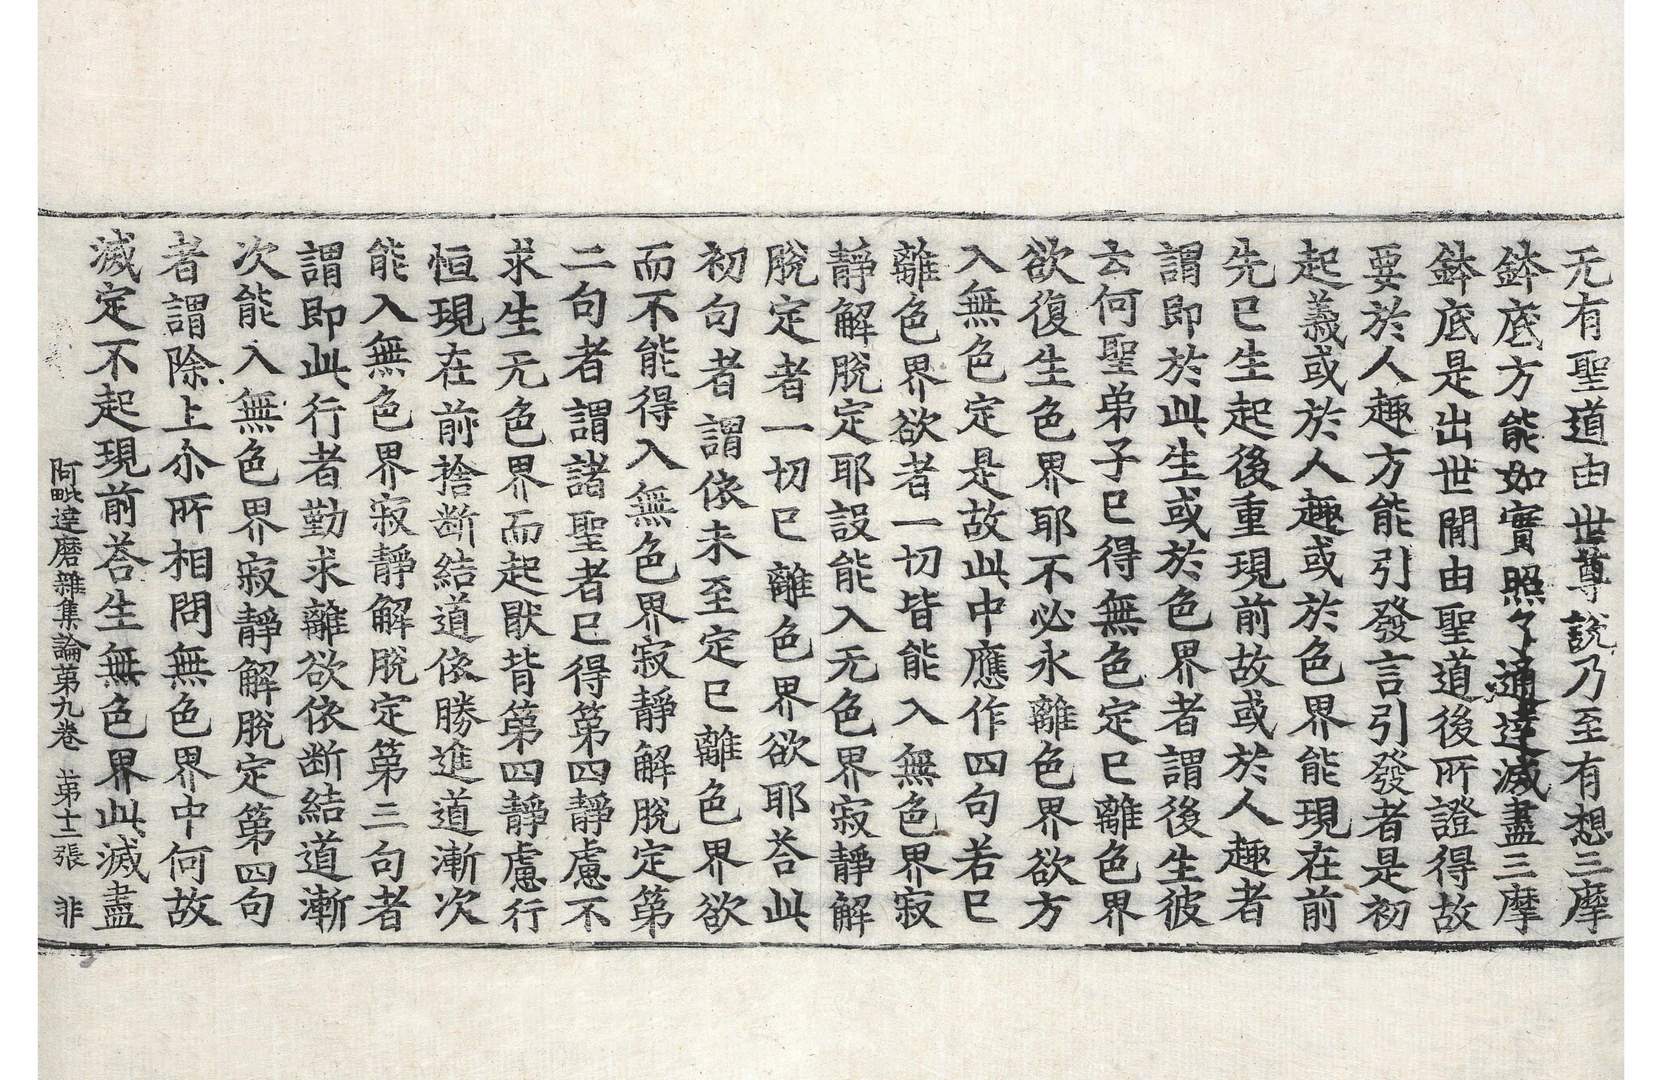 无有聖道由世尊說乃至有想三摩
鉢底方能如實照了通達滅盡三摩
鉢底是出世間由聖道後所證得故
要於人趣方能引發言引發者是初
起義或於人趣或於色界能現在前
先已生起後重現前故或於人趣者
謂即於此生或於色界者謂後生彼
云何聖弟子已得無色定已離色界
欲復生色界耶不必永離色界欲方
入無色定是故此中應作四句若已
離色界欲者一切皆能入無色界寂
靜解脫定耶設能入无色界寂靜解
脫定者一切已離色界欲耶荅此
初句者謂依未至定已離色界欲
而不能得入無色界寂靜解脫定第
二句者謂諸聖者已得第四靜慮不
求生无色界而起猒背第四靜慮行
恒現在前捨斷結道依勝進道漸次
能入無色界寂靜解脫定第三句者
謂即此行者勤求離欲依斷結道漸
次能入無色界寂靜解脫定第四句
者謂除上尒所相問無色界中何故
滅定不起現前荅生無色界此滅盡
阿毗達磨雜集論第九卷 第十二張 非